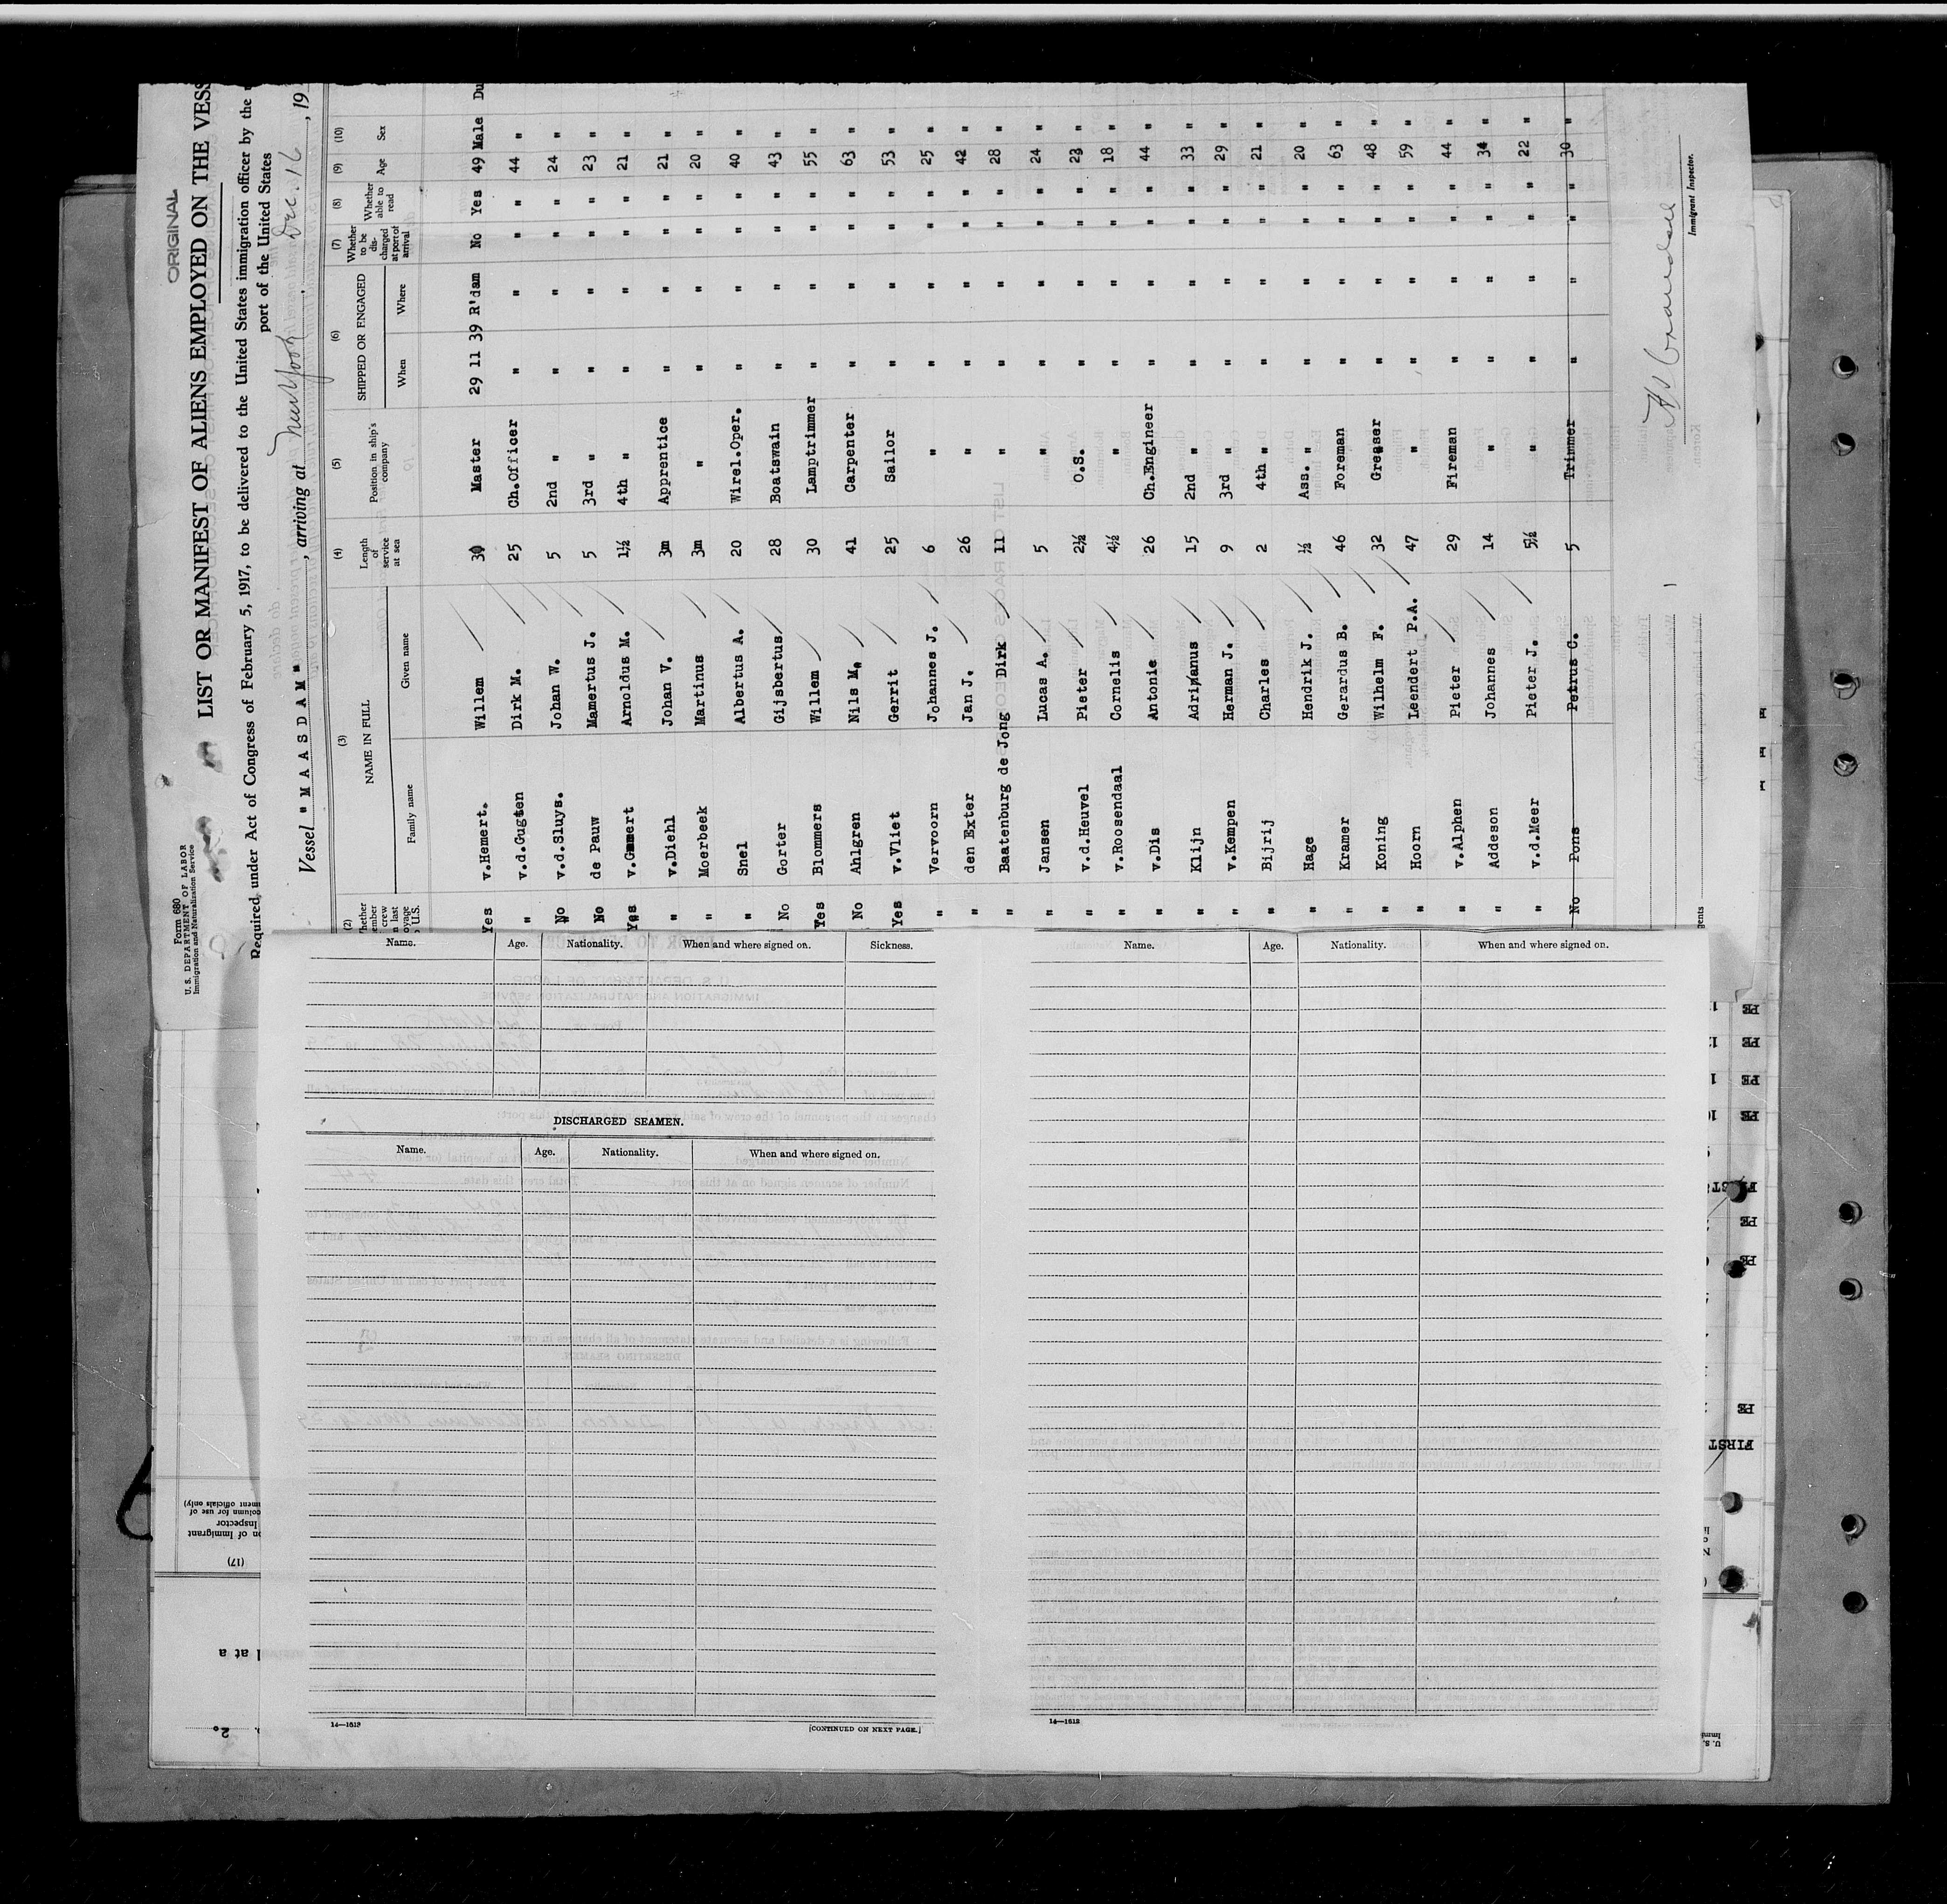 ORIGINAL
Form 680
U. S. DEPARTMENT OF LABOR
Immigration and Naturalization Service
LIST OR MANIFEST OF ALIENS EMPLOYED ON THE VESS
Required, under Act of Congress of February 5, 1917, to be delivered to the United States immigration officer by the
port of the United States
Vessel "MAASDAM", arriving at New York, Dec. 16, 19
(2) (3) (4) (5) (6) (7) (8) (9) (10)
NAME IN FULL
Family name Given name
Length of service at sea
Position in ship's company
SHIPPED OR ENGAGED
When Where
Whether to be discharged at port of arrival
Whether able to read
Age Sex
Yes v.Hemert. Willem 30 Master 29 11 39 R'dam No Yes 49 Male Du
" v.d.Gugten Dirk M. 25 Ch.Officer " " " " 44 "
No v.d.Sluys. Johan W. 5 2nd " " " " " 24 "
No de Pauw Mamertus J. 5 3rd " " " " " 23 "
Yes v.Gammert Arnoldus M. 1½ 4th " " " " " 21 "
" v.Diehl Johan V. 3m Apprentice " " " " 21 "
" Moerbeek Martinus 3m " " " " " 20 "
" Snel Albertus A. 20 Wirel.Oper. " " " " 40 "
No Gorter Gijsbertus 28 Boatswain " " " " 43 "
Yes Blommers Willem 30 Lamptrimmer " " " " 55 "
No Ahlgren Nils M. 41 Carpenter " " " " 63 "
Yes v.Vliet Gerrit 25 Sailor " " " " 53 "
" Vervoorn Johannes J. 6 " " " " " 25 "
" den Exter Jan J. 26 " " " " " 42 "
" Baatenburg de Jong Dirk 11 " " " " " 28 "
" Jansen Lucas A. 5 " " " " " 24 "
" v.d.Heuvel Pieter 2½ O.S. " " " " 23 "
" v.Roosendaal Cornelis 4½ " " " " " 18 "
" v.Dis Antonie 26 Ch.Engineer " " " " 44 "
" Klijn Adrianus 15 2nd " " " " " 33 "
" v.Kempen Herman J. 9 3rd " " " " " 29 "
" Bijrij Charles 2 4th " " " " " 21 "
" Hage Hendrik J. ½ Ass. " " " " " 20 "
" Kramer Gerardus B. 46 Foreman " " " " 63 "
" Koning Wilhelm F. 32 Greaser " " " " 48 "
" Hoorn Leendert P.A. 47 " " " " " 59 "
" v.Alphen Pieter 29 Fireman " " " " 44 "
" Addeson Johannes 14 " " " " " 34 "
" v.d.Meer Pieter J. 5½ " " " " " 22 "
No Pons Petrus C. 5 Trimmer " " " " 30 "
Immigrant Inspector.
Name. Age. Nationality. When and where signed on. Sickness.
DISCHARGED SEAMEN.
Name. Age. Nationality. When and where signed on.
14—1613
[CONTINUED ON NEXT PAGE.]
Name. Age. Nationality. When and where signed on.
14—1613
(17)
FIRST